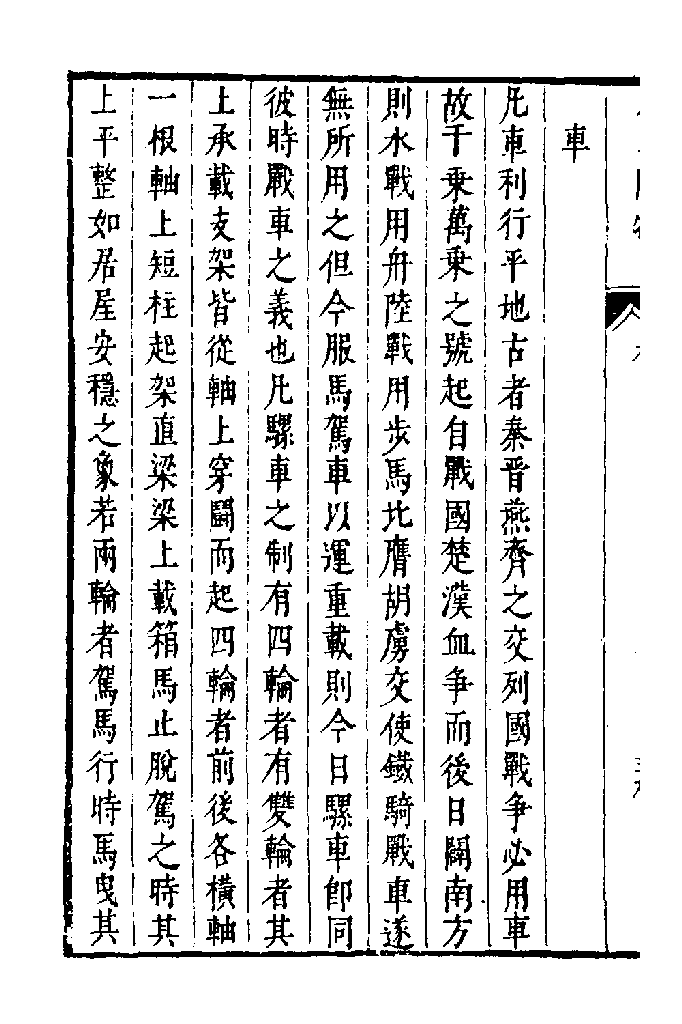 車
凡車利行平地古者秦晉燕齊之交列國戰爭必用車
故千乘萬乘之號起自戰國楚漢血爭而後日闢南方
則水戰用舟陸戰用步馬比膺胡虜交使鐵騎戰車遂
無所用之但今服馬駕車以運重載則今日騾車即同
彼時戰車之義也凡騾車之制有四輪者有雙輪者其
上承載支架皆從軸上穿鬭而起四輪者前後各橫軸
一根軸上短柱起架直梁梁上載箱馬止脫駕之時其
上平整如居屋安穩之象若兩輪者駕馬行時馬曳其